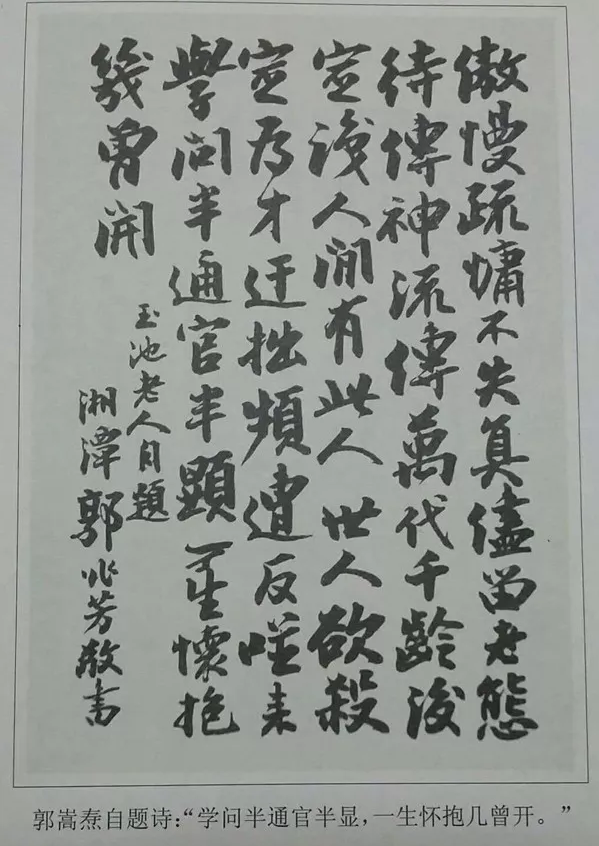 傲慢疏慵不失真儘留老態
待傳神流傳萬代千齡後
定識人間有此人世人欲殺
定為才迂拙頻遭反噬來
學問半通官半顯一生懷抱
幾曾開
玉池老人自題
湘潭郭兆芳敬書
郭嵩焘自题诗:“学问半通官半显,一生怀抱几曾开。”